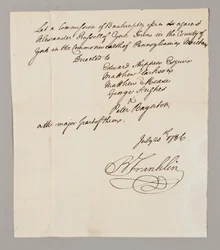 Let a Commission of Bankruptcy issue to & against
Alexander of York Town in the County of
York in the Commonwealth of Pennsylvania
Directed to
Edward Shippen Esquire
Matthew Clarkson
Matthew
George Hughes
&
Peter Baynton
or the major part of them.
July 20th 1786
B Franklin